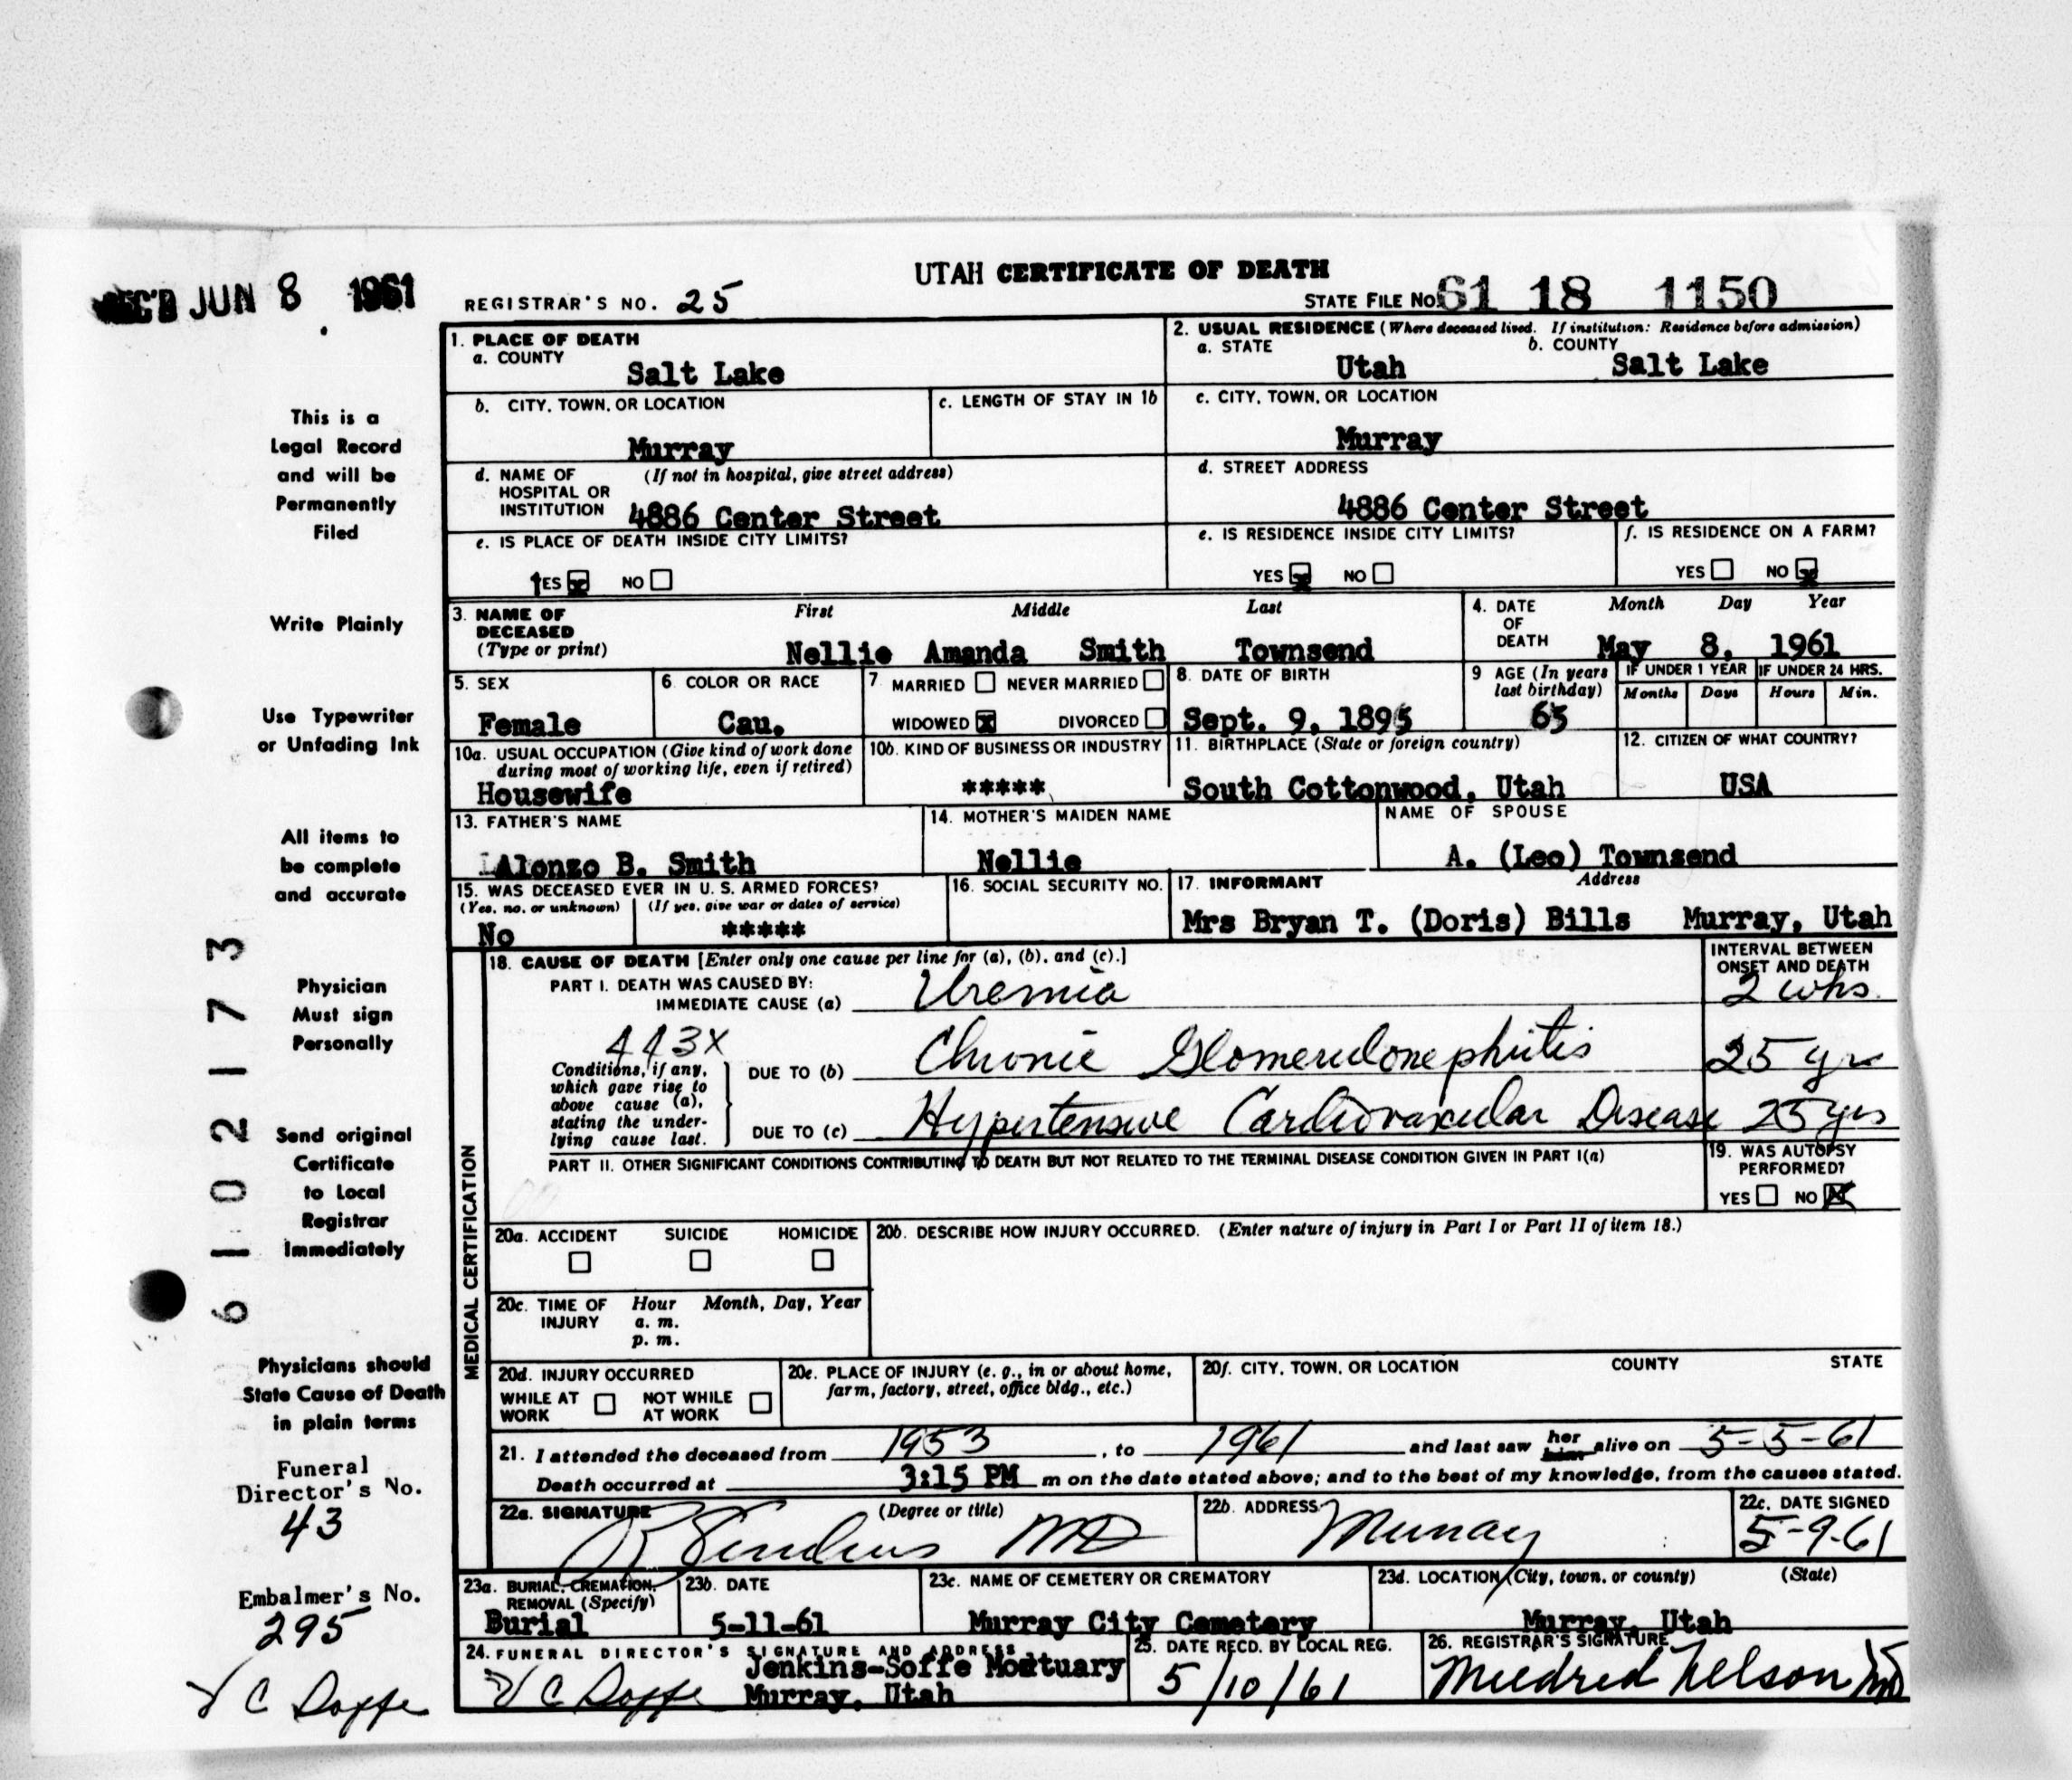 UTAH CERTIFICATE OF DEATH
REC'D JUN 8 1961
REGISTRAR'S NO. 25
STATE FILE NO. 61 18 1150
1. PLACE OF DEATH
a. COUNTY
Salt Lake
2. USUAL RESIDENCE (Where deceased lived. If institution: Residence before admission)
a. STATE
Utah
b. COUNTY
Salt Lake
b. CITY, TOWN, OR LOCATION
Murray
c. LENGTH OF STAY IN 1b
c. CITY, TOWN, OR LOCATION
Murray
d. NAME OF HOSPITAL OR INSTITUTION
(If not in hospital, give street address)
4886 Center Street
d. STREET ADDRESS
4886 Center Street
e. IS PLACE OF DEATH INSIDE CITY LIMITS?
YES x NO
e. IS RESIDENCE INSIDE CITY LIMITS?
YES x NO
f. IS RESIDENCE ON A FARM?
YES NO x
3. NAME OF DECEASED (Type or print)
First Middle Last
Nellie Amanda Smith Townsend
4. DATE OF DEATH
Month Day Year
May 8, 1961
5. SEX
Female
6. COLOR OR RACE
Cau.
7 MARRIED NEVER MARRIED
WIDOWED x DIVORCED
8. DATE OF BIRTH
Sept. 9, 1895
9 AGE (In years last birthday)
65
IF UNDER 1 YEAR
Months Days
IF UNDER 24 HRS.
Hours Min.
10a. USUAL OCCUPATION (Give kind of work done during most of working life, even if retired)
Housewife
10b. KIND OF BUSINESS OR INDUSTRY
*****
11. BIRTHPLACE (State or foreign country)
South Cottonwood, Utah
12. CITIZEN OF WHAT COUNTRY?
USA
13. FATHER'S NAME
Alonzo B. Smith
14. MOTHER'S MAIDEN NAME
Nellie
NAME OF SPOUSE
A. (Leo) Townsend
15. WAS DECEASED EVER IN U. S. ARMED FORCES?
(Yes, no, or unknown) (If yes, give war or dates of service)
No *****
16. SOCIAL SECURITY NO.
17. INFORMANT Address
Mrs Bryan T. (Doris) Bills Murray, Utah
MEDICAL CERTIFICATION
18. CAUSE OF DEATH [Enter only one cause per line for (a), (b), and (c).]
INTERVAL BETWEEN ONSET AND DEATH
PART I. DEATH WAS CAUSED BY:
IMMEDIATE CAUSE (a) Uremia 2 wks.
443X
Conditions, if any, which gave rise to above cause (a), stating the underlying cause last.
DUE TO (b) Chronic Glomerulonephritis 25 yrs
DUE TO (c) Hypertensive Cardiovascular Disease 25 yrs
PART II. OTHER SIGNIFICANT CONDITIONS CONTRIBUTING TO DEATH BUT NOT RELATED TO THE TERMINAL DISEASE CONDITION GIVEN IN PART I(a)
19. WAS AUTOPSY PERFORMED?
YES NO X
20a. ACCIDENT SUICIDE HOMICIDE
20b. DESCRIBE HOW INJURY OCCURRED. (Enter nature of injury in Part I or Part II of item 18.)
20c. TIME OF INJURY
Hour Month, Day, Year
a. m.
p. m.
20d. INJURY OCCURRED
WHILE AT WORK NOT WHILE AT WORK
20e. PLACE OF INJURY (e. g., in or about home, farm, factory, street, office bldg., etc.)
20f. CITY, TOWN, OR LOCATION COUNTY STATE
21. I attended the deceased from 1953, to 1961 and last saw her him alive on 5-5-61
Death occurred at 3:15 PM m on the date stated above; and to the best of my knowledge, from the causes stated.
22a. SIGNATURE (Degree or title)
MD
22b. ADDRESS
Murray
22c. DATE SIGNED
5-9-61
23a. BURIAL, CREMATION, REMOVAL (Specify)
Burial
23b. DATE
5-11-61
23c. NAME OF CEMETERY OR CREMATORY
Murray City Cemetery
23d. LOCATION (City, town, or county) (State)
Murray, Utah
24. FUNERAL DIRECTOR'S SIGNATURE AND ADDRESS
Jenkins-Soffe Mortuary
Murray, Utah
25. DATE RECD. BY LOCAL REG.
5/10/61
26. REGISTRAR'S SIGNATURE
Mildred Nelson
This is a
Legal Record
and will be
Permanently
Filed
Write Plainly
Use Typewriter
or Unfading Ink
All items to
be complete
and accurate
Physician
Must sign
Personally
Send original
Certificate
to Local
Registrar
Immediately
Physicians should
State Cause of Death
in plain terms
Funeral
Director's No.
43
Embalmer's No.
295
C Soffe
6102173